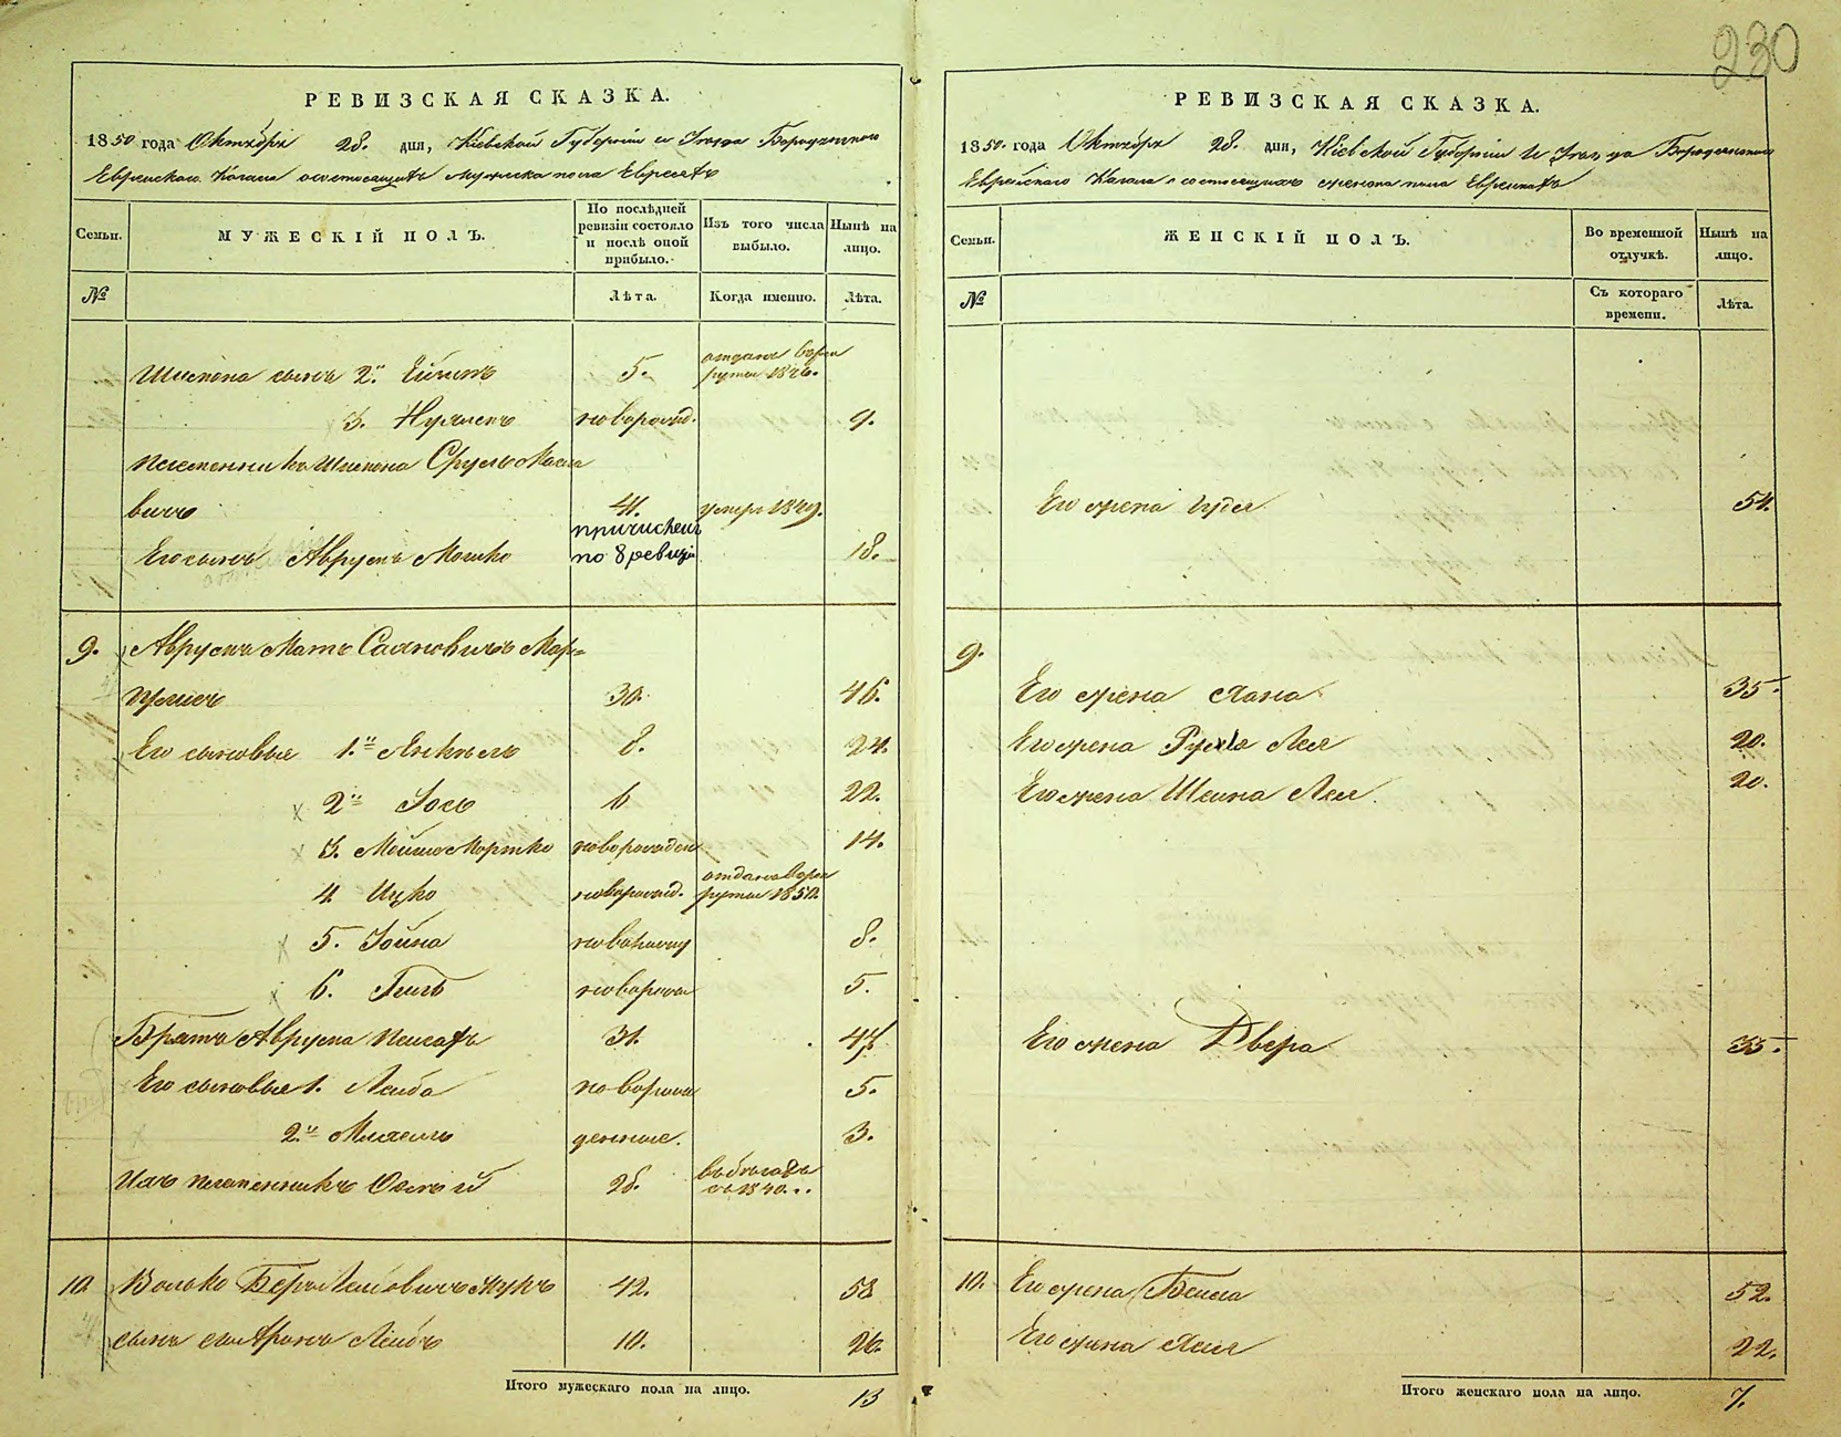 230
РЕВИЗСКАЯ СКАЗКА.
1850 года Октября 28. дня, Кіевской Губерніи и Уезда Бородянскаго
Еврейскаго Кагала о состоящихъ мужеска пола Евреяхъ
Семьи.
МУЖЕСКІЙ ПОЛЪ.
По послѣдней ревизіи состояло и послѣ оной прибыло.
Изъ того числа выбыло.
Нынѣ на лицо.
№
Лѣта.
Когда именно.
Лѣта.
Шмемона сынъ 2й 5. отданъ въ рекруты 1846.
3. новорожд. 9.
Племянникъ Шмемона Сруль
вичъ 41. умеръ 1849.
Его сынъ Аврумъ Мошко причисленъ по 8 ревизіи 18.
9. Аврумъ Мат Мар=
30. 46.
Его сыновья 1й Янкель 8. 24.
2й Іось 6 22.
3. Мойше Мортко новорожден 14.
4 Ицко новорожд. отданъ въ рекруты 1850.
5. Іойна 8.
6. новорожд 5.
Братъ Аврума Пейсахъ 31. 47.
Его сыновья 1. Лейба новорож 5.
2й денные. 3.
Ихъ племянникъ 28. въ бѣгахъ съ 1840...
10. Волько Беръ Лейбовичъ Жукъ 42. 58
сынъ его Аронъ Лейбъ 10. 26.
Итого мужескаго пола на лицо. 13
РЕВИЗСКАЯ СКАЗКА.
1850. года Октября 28. дня, Кіевской Губерніи и Уезда Бородянскаго
Еврейскаго Кагала о состоящихъ женска пола Евреикахъ
Семьи.
ЖЕНСКІЙ ПОЛЪ.
Во временной отлучкѣ.
Нынѣ на лицо.
№
Съ котораго времени.
Лѣта.
Его жена 54.
9.
Его жена Хана 35.
Его жена Рухля Лея 20.
Его жена Шейна Лея. 20.
Его жена Двера 35.
10. Его жена Бейла 52.
Его жена Хая 22.
Итого женскаго пола на лицо. 7.